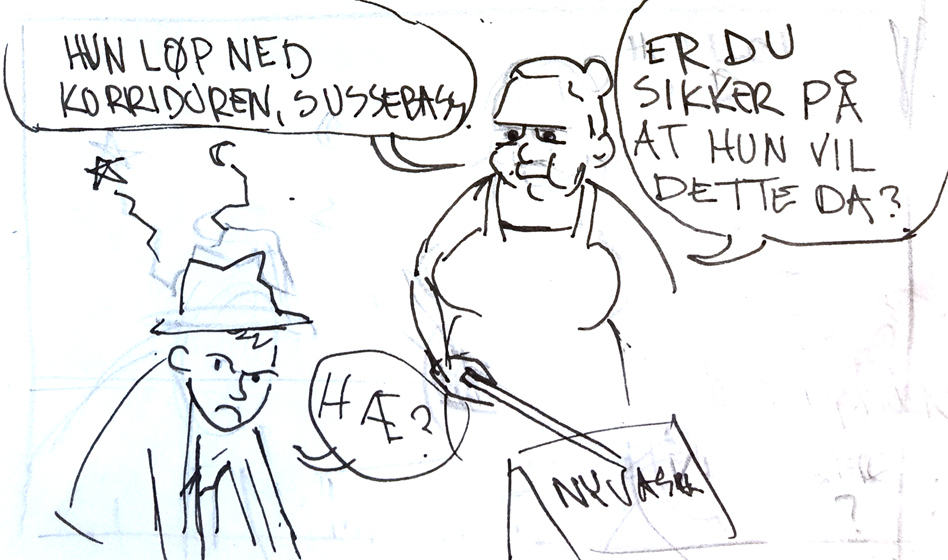 HUN LØP NED
KORRIDOREN, SUSSEBASS.
ER DU
SIKKER PÅ
AT HUN VIL
DETTE DA?
HÆ?
NYVASK